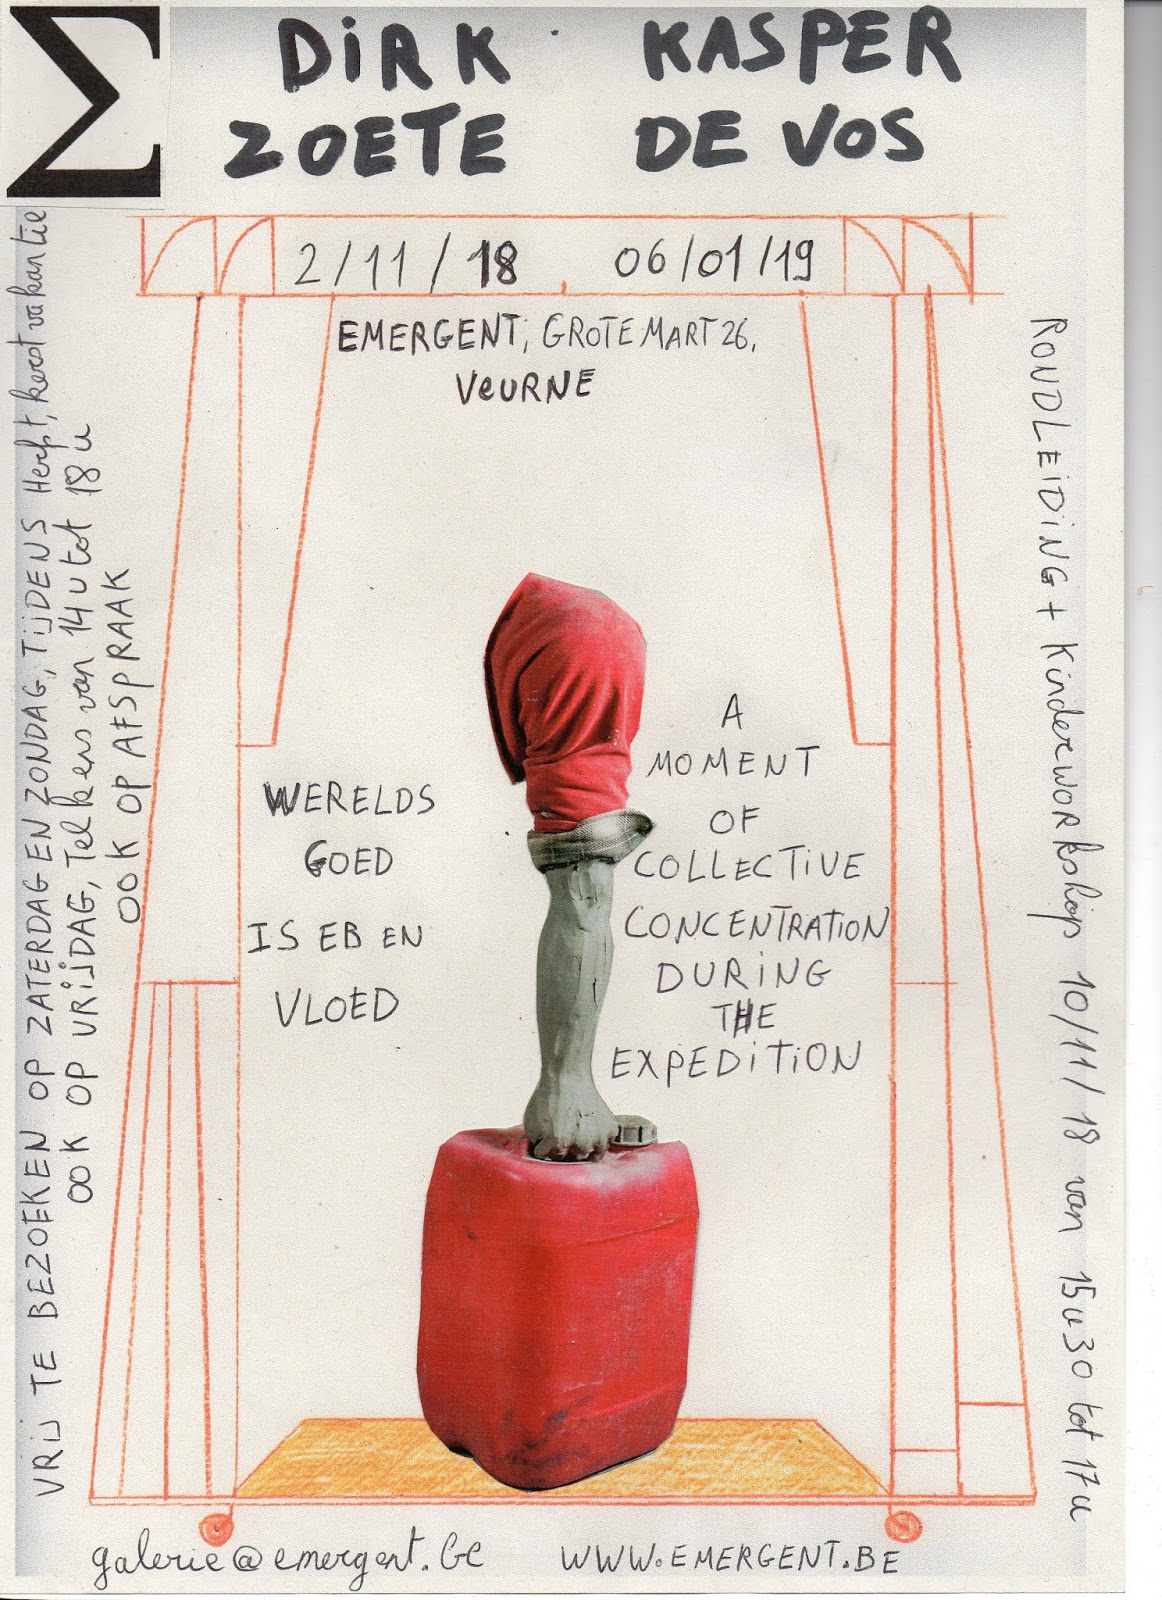 Σ
DiRK
ZOETE
KASPER
DE VOS
2/11/18
06/01/19
EMERGENT, GROTE MART 26,
VEURNE
WERELDS
GOED
IS EB EN
VLOED
A
MOMENT
OF
COLLECTIVE
CONCENTRATION
DURiNG
THE
EXPEDiTiON
VRIJ TE BEZOEKEN OP ZATERDAG EN ZONDAG, TIJDENS Herfst, kerstvakantie
OOK OP VRIJDAG, Telkens van 14u tot 18u
OOK OP AFSPRAAK
RONDLEiDiNG + Kinderworkshop 10/11/18 van 15u30 tot 17u
galerie@emergent.be
WWW.EMERGENT.BE